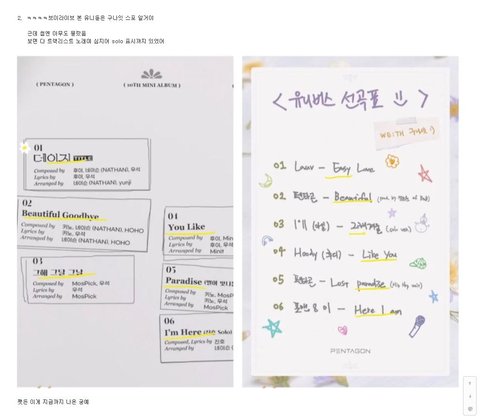 2. ㅋㅋㅋㅋ브이라이브 본 유니들은 구나잇 스포 알거야
근데 첨엔 아무도 몰랐음
보면 다 트랙리스트 노래야 심지어 solo 표시까지 있었어
( PENTAGON )
( 10TH MINI ALBUM )
01
데이지 TITLE
Composed by 후이, 네이슨 (NATHAN), 우석
Lyrics by 후이, 우석
Arranged by 네이슨 (NATHAN), yunji
02
Beautiful Goodbye
Composed by 키노, 네이슨 (NATHAN), HOHO
Lyrics by 키노, 우석
Arranged by 네이슨 (NATHAN), HOHO
03
그해 그달 그날
Composed by MosPick, 우석
Lyrics by 우석
Arranged by MosPick
04
You Like
Composed by 후이, Min
Lyrics by 후이, 우석
Arranged by Minit
05
Paradise
Composed by 키노, MosP
Lyrics by 키노, 우석
Arranged by MosPick
06
I'm Here (진호 Solo)
Composed, Lyrics by 진호
Arranged by 네이슨
< 유니버스 선곡표 >
WD:TH
01 Lauv - Easy Love
02 펜타곤 - Beautiful
03
04 Hoody - Like You
05 펜타곤 - Lost paradise
06 - Here I am
PENTAGON
쨋든 이게 지금까지 나온 궁예